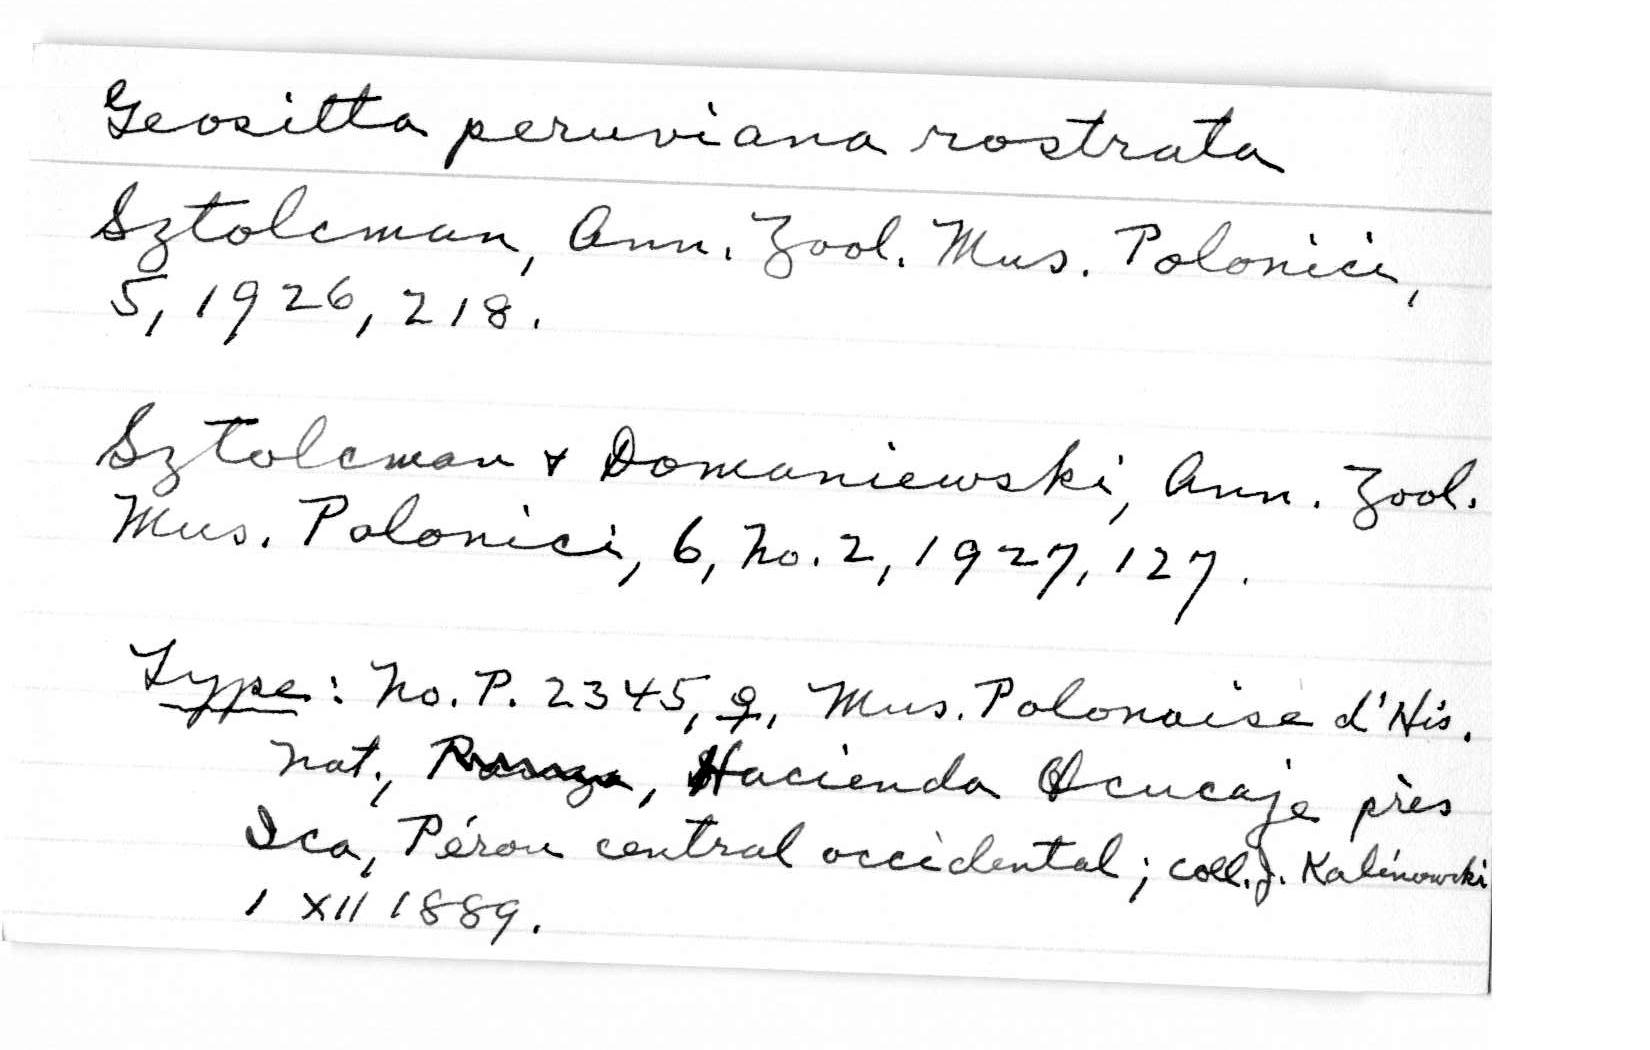 Geositta peruviana rostrata
Sztolcman, Ann. Zool. Mus. Polonici,
5, 1926, 218.
Sztolcman & Domaniewski, Ann. Zool.
Mus. Polonici, 6, No. 2, 1927, 127.
Type: No. P. 2345, ♀, Mus. Polonaise d'His.
Nat., Hacienda Ocucaje près
Ica, Pérou central occidental; coll. J. Kalinowski
1 XII 1889.